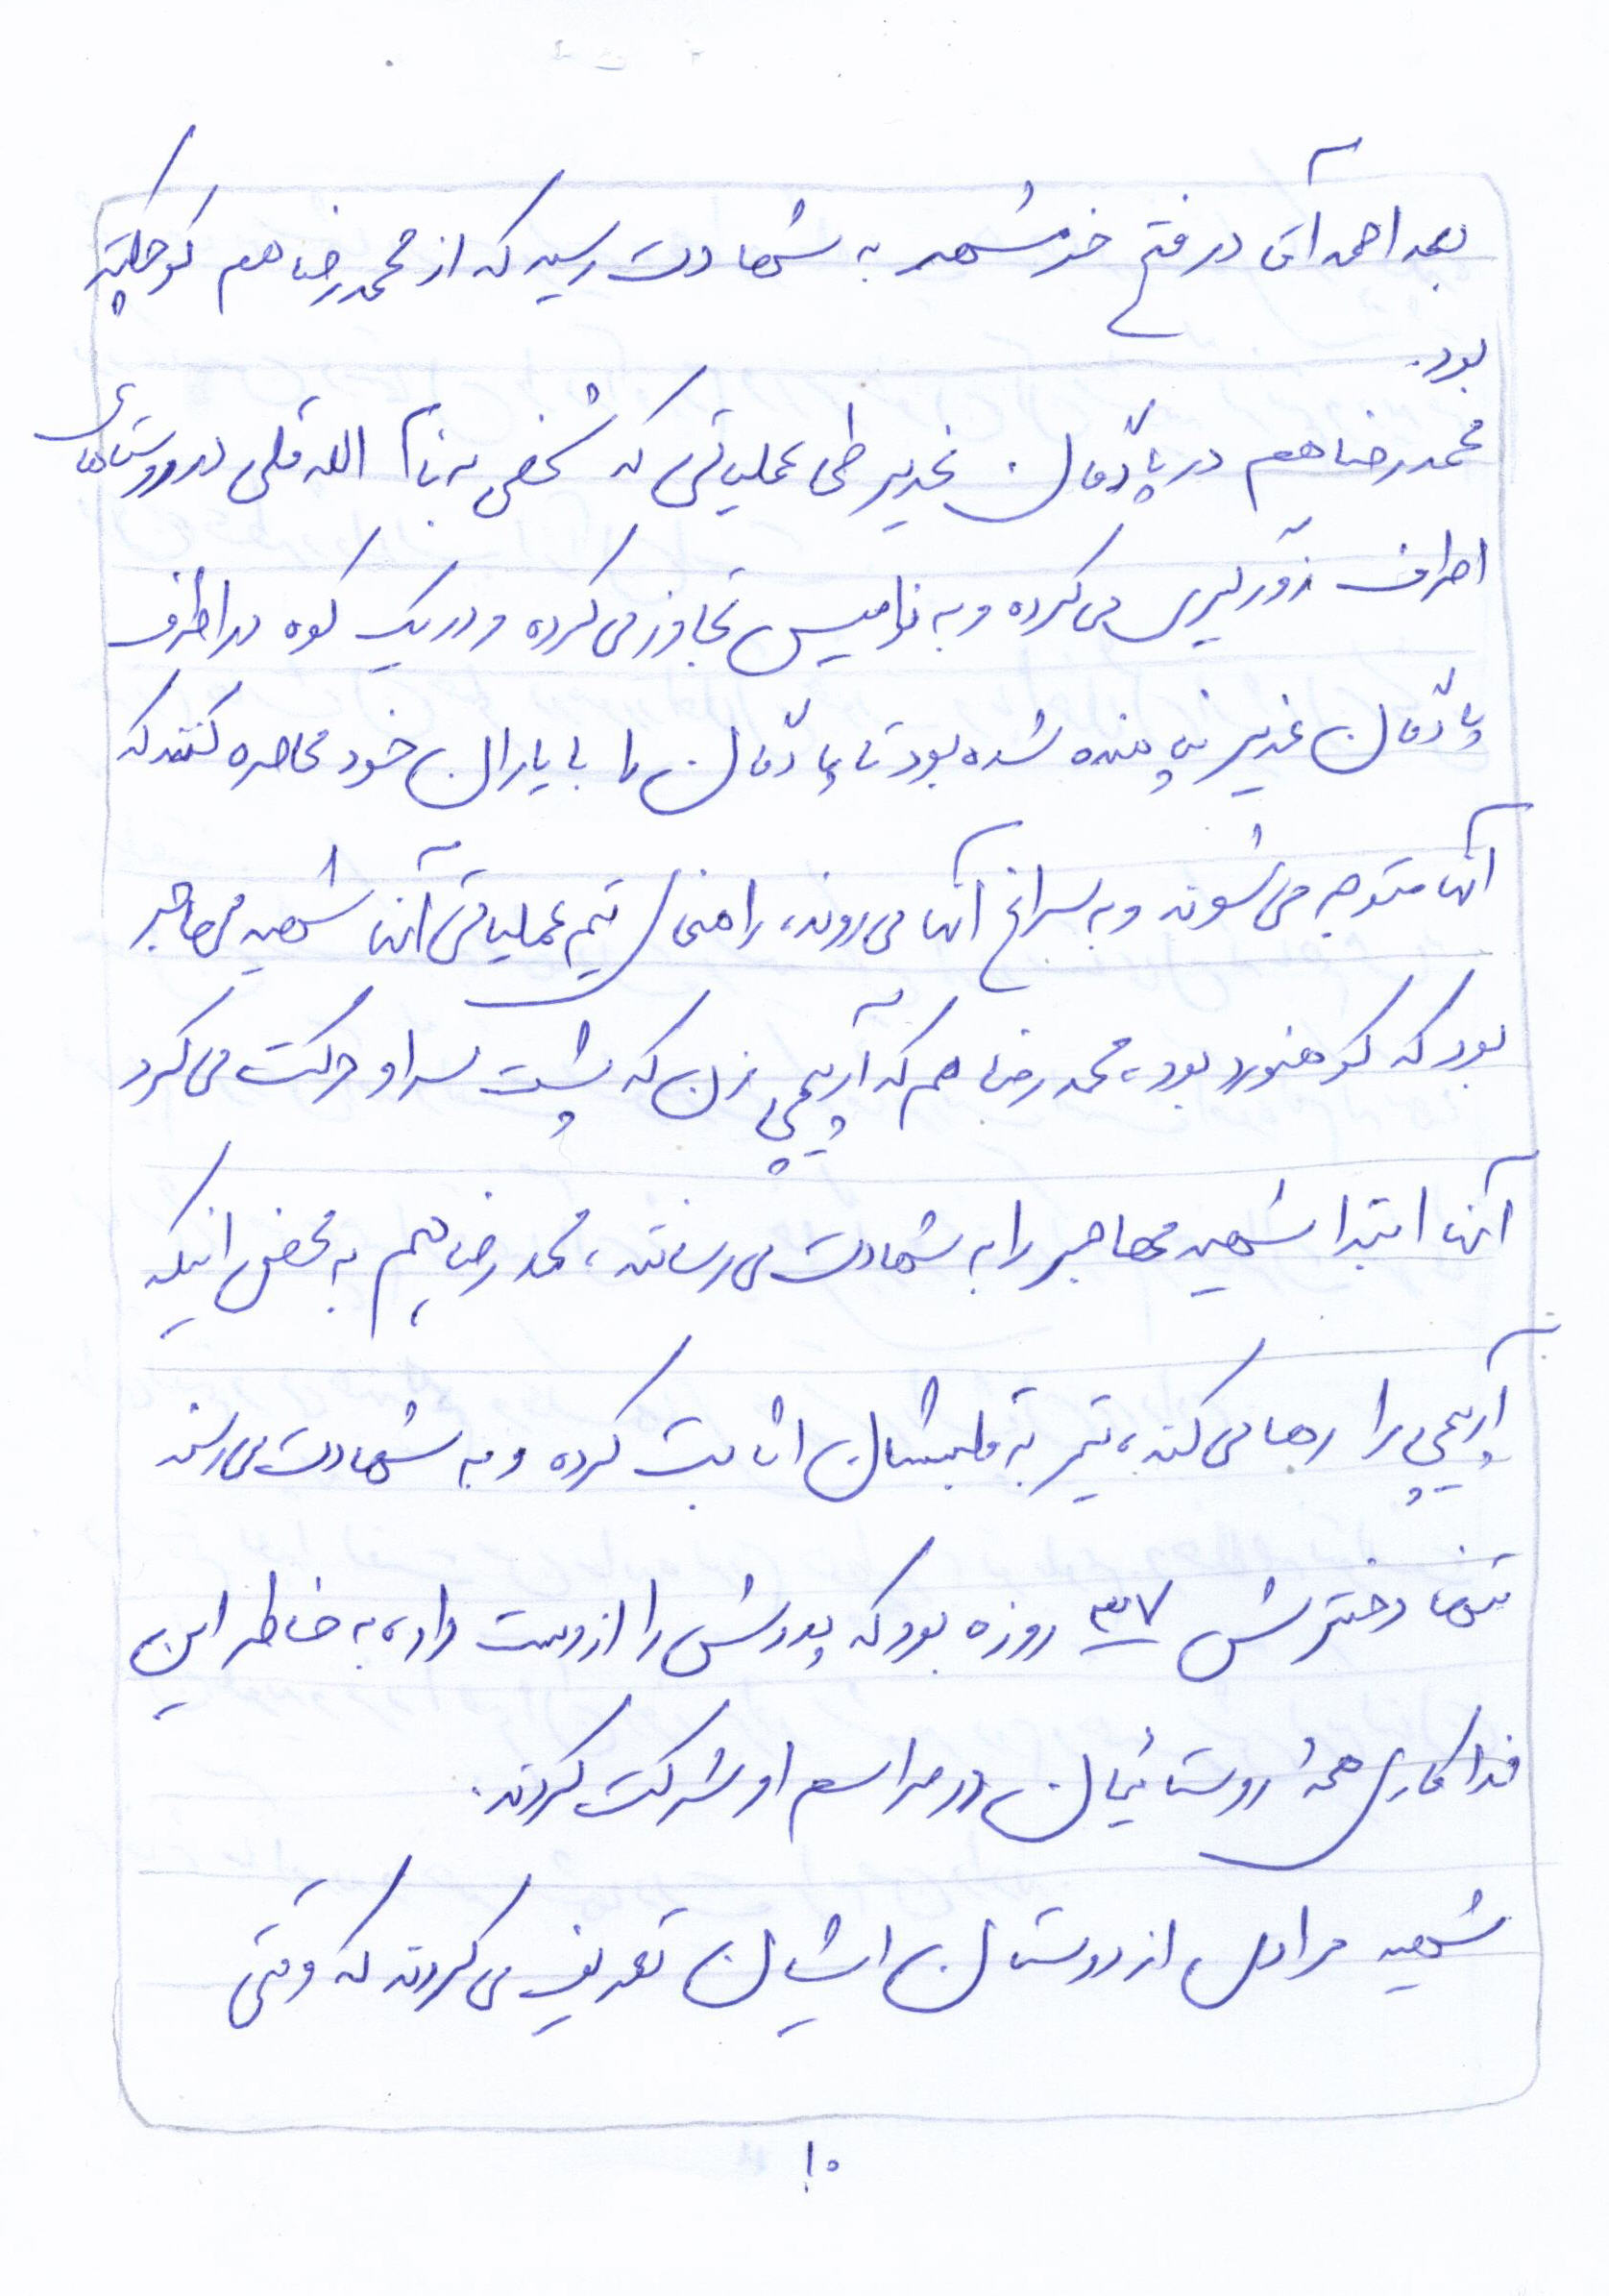 بعد احمد آقا در فتح خرمشهر به شهادت رسید که از محمدرضا هم کوچکتر
بود.
محمدرضا هم در پادگان غدیر طی عملیاتی که شخصی به نام الله قلی در روستاهای
اطراف زورگیری می‌کرده و به نوامیس تجاوز می‌کرده و در یک کوه در اطراف
پادگان غدیر پناهنده شده بود تا پادگان را با یاران خود محاصره کنند که
آنها متوجه می‌شوند و به سراغ آنها می‌روند، راهنمای تیم عملیاتی آنها شهید مهاجر
بود که کوهنورد بود، محمدرضا هم که آرپی‌جی زن که پشت سر او حرکت می‌کرد
آنها ابتدا شهید مهاجر را به شهادت می‌رسانند، محمدرضا هم به محض اینکه
آرپی‌جی را رها می‌کند، تیر به قلبشان اثابت کرده و به شهادت می‌رسند
تنها دخترش ۳۷ روزه بود که پدرش را از دست داد، به خاطر این
فداکاری همهٔ روستائیان در مراسم او شرکت کردند.
شهید مرادی از دوستان ایشان تعریف می‌کردند که وقتی
۱۰